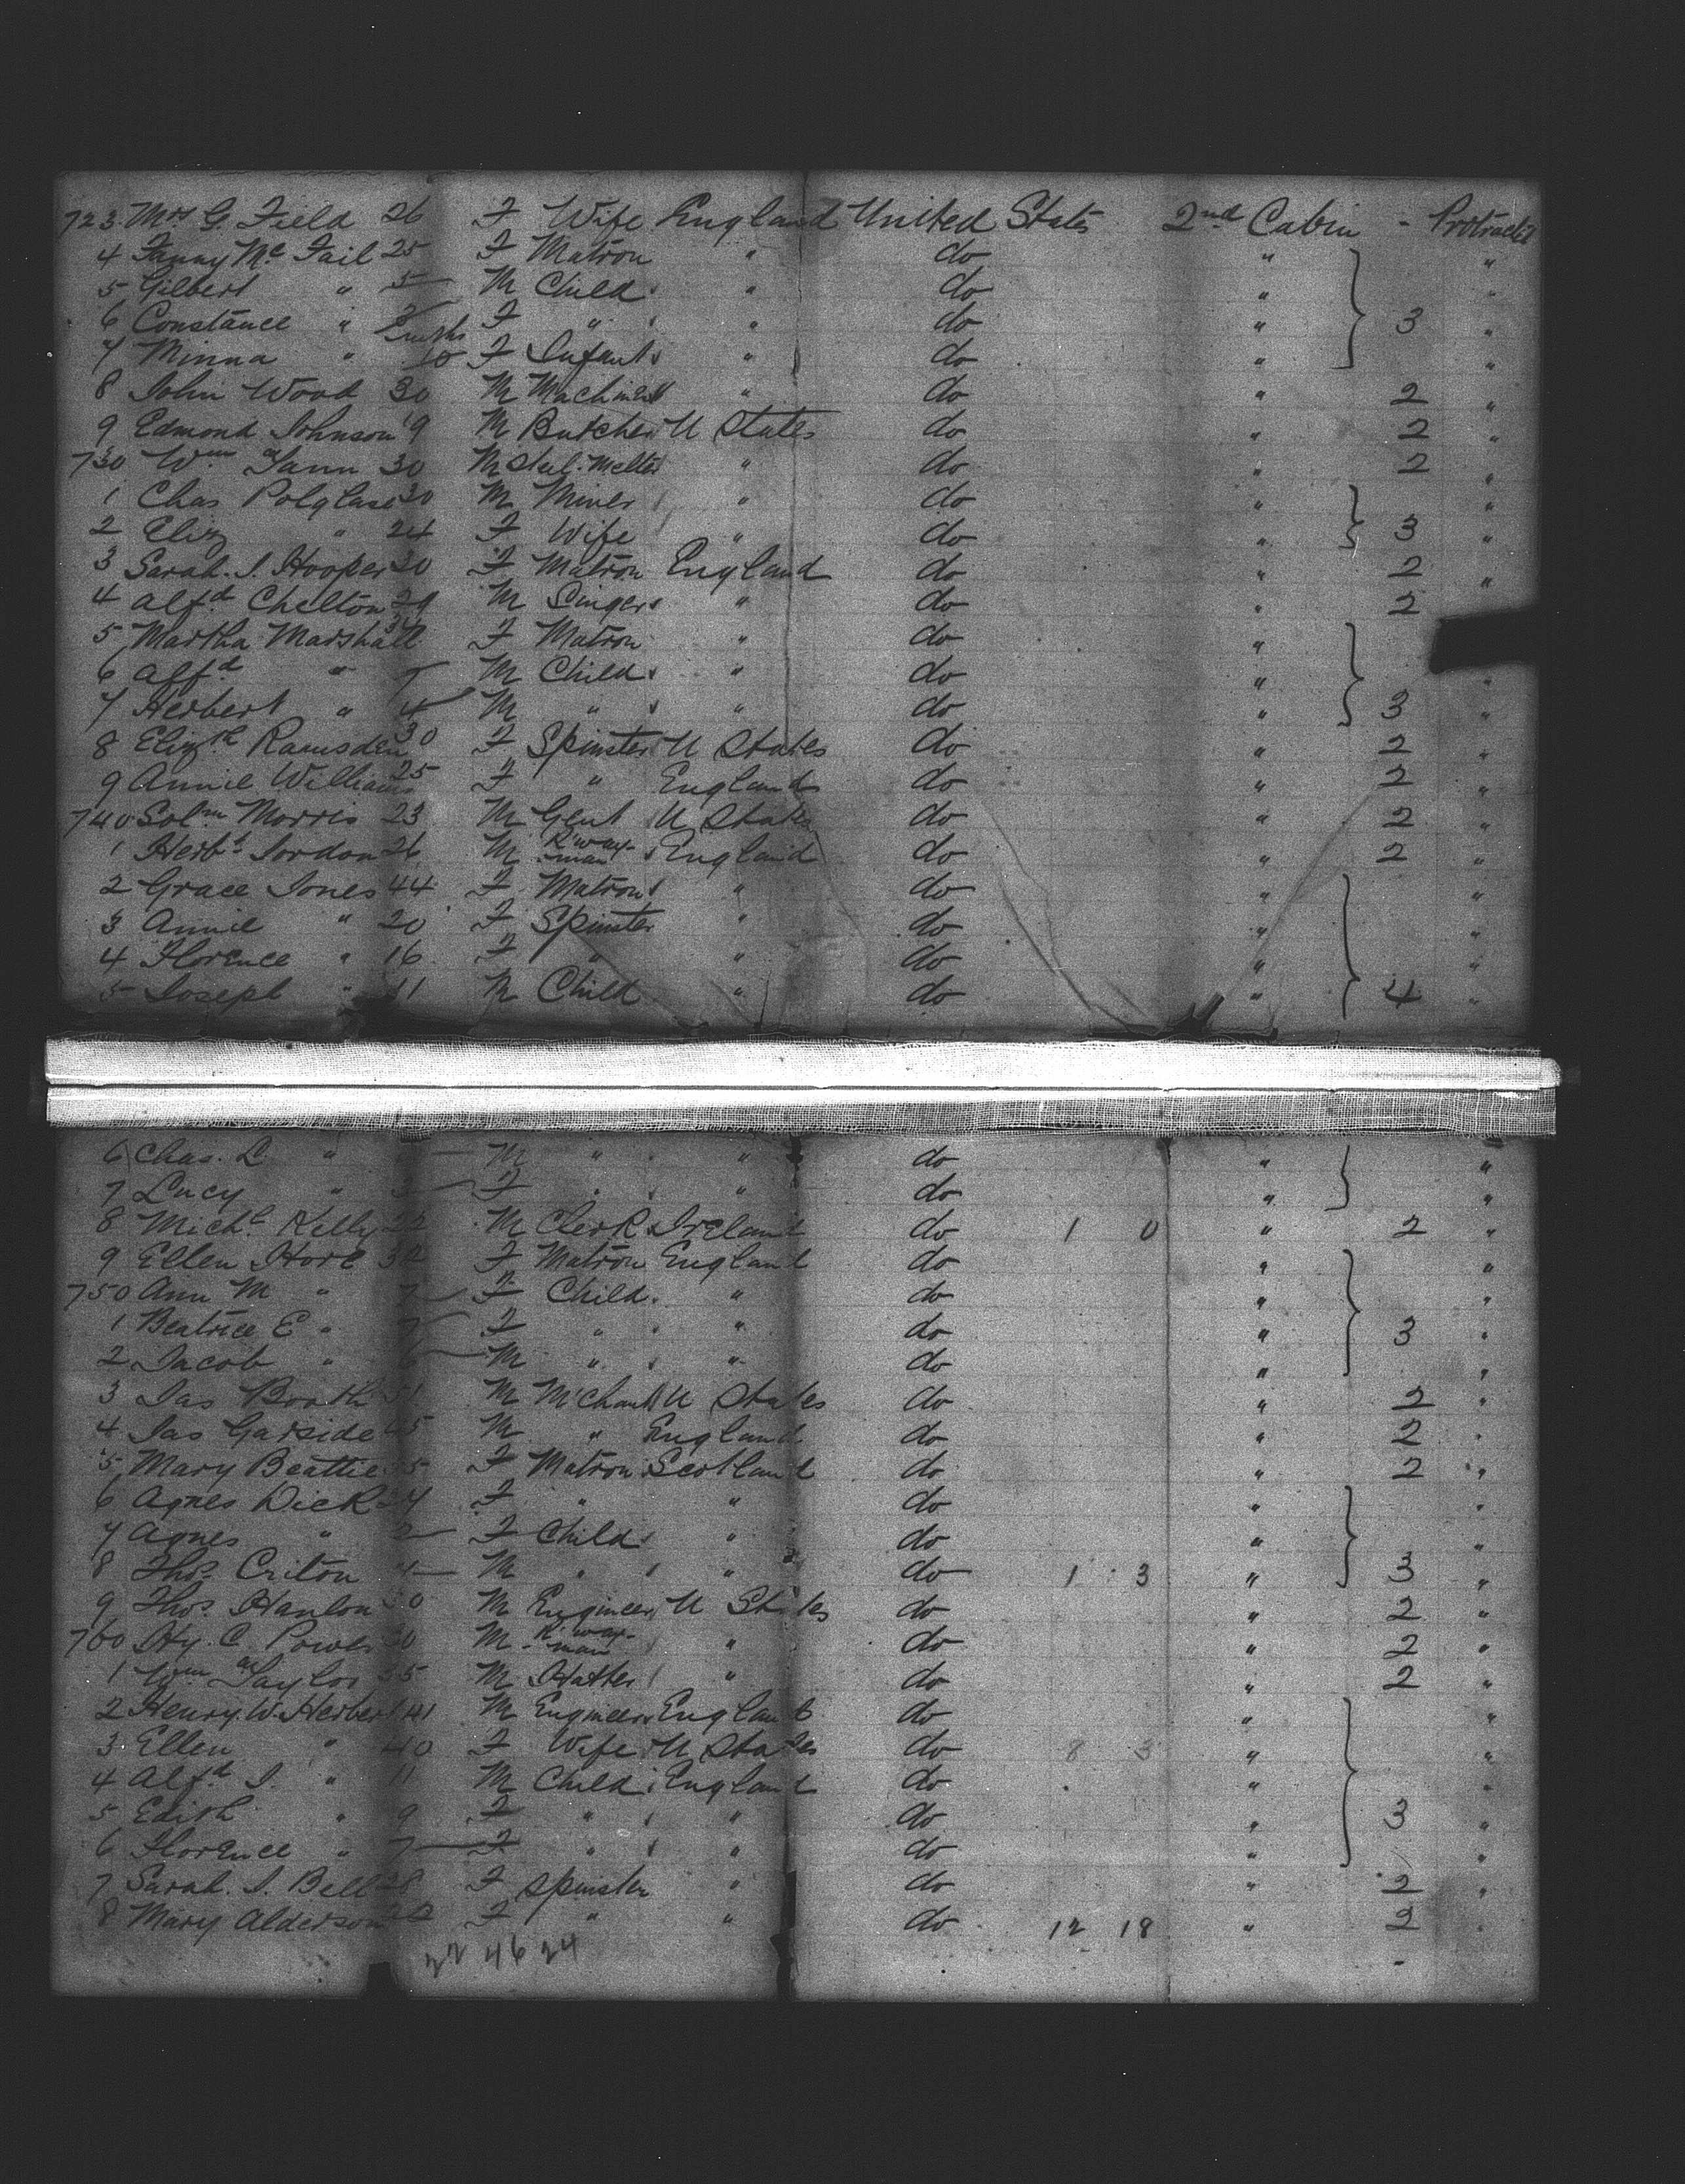 723 Mrs G. Field 26 F Wife England United States 2nd Cabin - Protracted
4 Fanny Mc Fail 25 F Matron " do " "
5 Gilbert " 5 M Child " do " "
6 Constance " F " " do " 3 "
7 Minna " 10 F Infant " do " "
8 John Wood 30 M Machinist " do " 2 "
9 Edmond Johnson 19 M Butcher U States do " 2 "
730 Wm Tann 30 M Steel Melter " do " 2 "
1 Chas Polglase 30 M Miner " do " "
2 Eliz " 24 F Wife " do " 3 "
3 Sarah. J. Hooper 30 F Matron England do " 2 "
4 Alfd Chelton 29 M Singer " do " 2
5 Martha Marshall F Matron " do "
6 Alfd " M Child " do " "
7 Herbert " 4 M " " do " 3 "
8 Elizth Ramsden 30 F Spinster U States do " 2 "
9 Annie Williams 25 F " England do " 2 "
740 Solm Morris 23 M Gent U States do " 2 "
1 Herbt Jordon 26 M R'way-man England do " 2 "
2 Grace Jones 44 F Matron " do " "
3 Annie " 20 F Spinster " do " "
4 Florence " 16 F " " do " "
5 Joseph " 11 M Child " do " 4 "
6 Chas. L " M " " do " "
7 Lucy " F " " do " "
8 Michl Kelly 22 M Clerk Ireland do 1 0 " 2 "
9 Ellen Hore 32 F Matron England do " "
750 Ann M " F Child " do " "
1 Beatrice E " 7 F " " do " 3 "
2 Jacob " 6 M " " do " "
3 Jas Booth M M'chant U States do " 2 "
4 Jas Garside M " England do " 2 "
5 Mary Beattie F Matron Scotland do " 2 "
6 Agnes Dick 24 F " " do " "
7 Agnes " 2 F Child " do " "
8 Thos. Criton 4 M " " do 1 3 " 3 "
9 Thos. Hanlon M Engineer U States do " 2 "
760 Hy. C. Power 30 M R'way-man " do " 2 "
1 Wm Taylor M Hatter " do " 2 "
2 Henry. W. Herbert 41 M Engineer England do " "
3 Ellen " 40 F Wife U States do 8 3 " "
4 Alfd J. " 11 M Child England do " "
5 Edith " 9 F " " do " 3 "
6 Florence " 7 F " " do " "
7 Sarah. J. Bell 28 F Spinster " do " 2 "
8 Mary Alderson F " " do 12 18 " 2 "
22 46 24